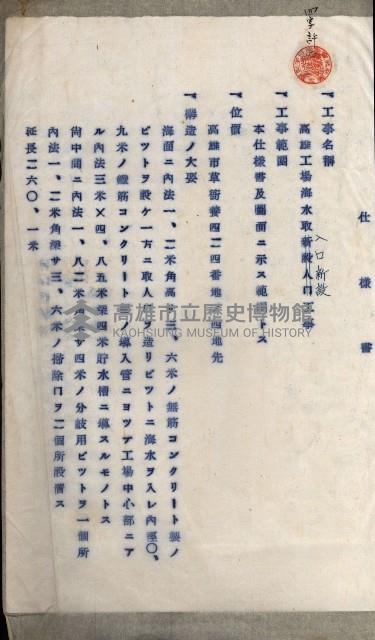 仕様書
一、工事名稱
高雄工場海水取入口新設工事
一、工事範圍
本仕様書及圖面ニ示ス範圍トス
一、位置
高雄市草衙 四二四番地 四地先
一、構造ノ大要
海面ニ內法一、二米角高サ三、六米ノ無筋コンクリート製ノ
ピットヲ設ケ一方ニ取入口ヲ造リピットニ海水ヲ入レ內徑〇、
九米ノ鐵筋コンクリート 導入管ニヨツテ工場中心部ニア
ル內法三米×四、八五米深四米貯水槽ニ導スルモノトス
尚中間ニ內法一、八二米 四米ノ分岐用ピットヲ一個所
內法一、二米角深サ三、六米ノ掃除口ヲ二個所設置ス
延長二六〇、一米
入口新設
高雄市立歷史博物館
KAOHSIUNG MUSEUM OF HISTORY